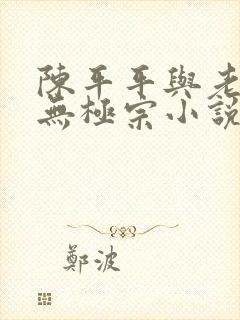 陳平平與老
無極宗小說
鄭波